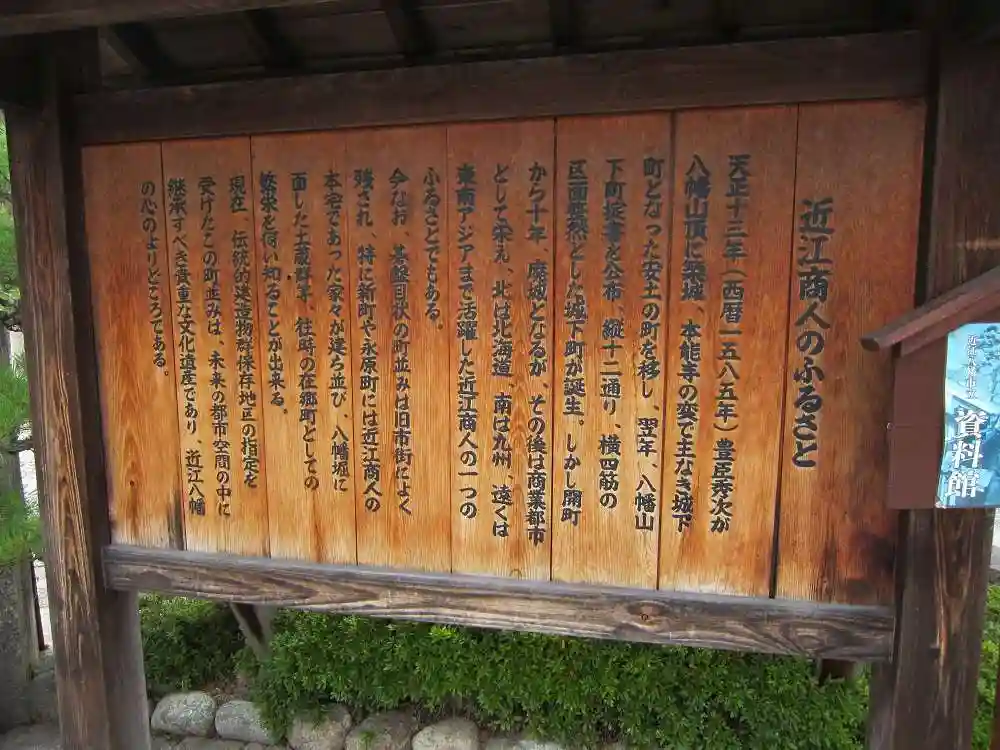 近江商人のふるさと
天正十三年（西暦一五八五年）豊臣秀次が
八幡山頂に築城、本能寺の変で主なき城下
町となった安土の町を移し、翌年、八幡山
下町掟書を公布、縦十二通り、横四筋の
区画整然とした城下町が誕生。しかし開町
から十年、廃城となるが、その後は商業都市
として栄え、北は北海道、南は九州、遠くは
東南アジアまで活躍した近江商人の一つの
ふるさとでもある。
今なお、碁盤目状の町並みは旧市街によく
残され、特に新町や永原町には近江商人の
本宅であった家々が建ち並び、八幡堀に
面した土蔵群等、往時の在郷町としての
繁栄を伺い知ることが出来る。
現在、伝統的建造物群保存地区の指定を
受けたこの町並みは、未来の都市空間の中に
継承すべき貴重な文化遺産であり、近江八幡
の心のよりどころである。
資料館